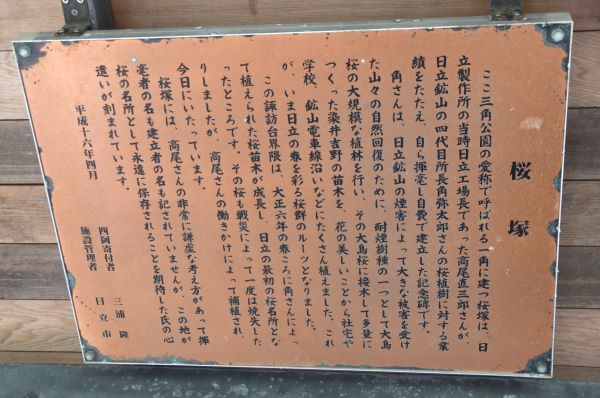 桜塚
ここ三角公園の愛称で呼ばれる一角に建つ桜塚は、日
立製作所の当時日立工場長であった高尾直三郎さんが、
日立鉱山の四代目所長角弥太郎さんの桜植樹に対する業
績をたたえ、自ら揮毫し自費で建立した記念碑です。
角さんは、日立鉱山の煙害によって大きな被害を受け
た山々の自然回復のために、耐煙樹種の一つとして大島
桜の大規模な植林を行い、その大島桜に接木して多量に
つくった染井吉野の苗木を、花の美しいことから社宅や
学校、鉱山電車線沿いなどにたくさん植えました。これ
が、いま日立の春を彩る桜群のルーツとなりました。
この諏訪台界隈は、大正六年の春ころに角さんによっ
て植えられた桜苗木が成長し、日立の最初の桜名所とな
ったところです。その桜も戦災によって一度は焼失した
りしましたが、高尾さんの働きかけによって補植され、
今日にいたっています。
桜塚には、高尾さんの非常に謙虚な考え方があって揮
毫者の名も建立者の名も記されていませんが、この地が
桜の名所として永遠に保存されることを期待した氏の心
遣いが刻まれています。
平成十六年四月
四阿寄付者 三浦隆
施設管理者 日立市